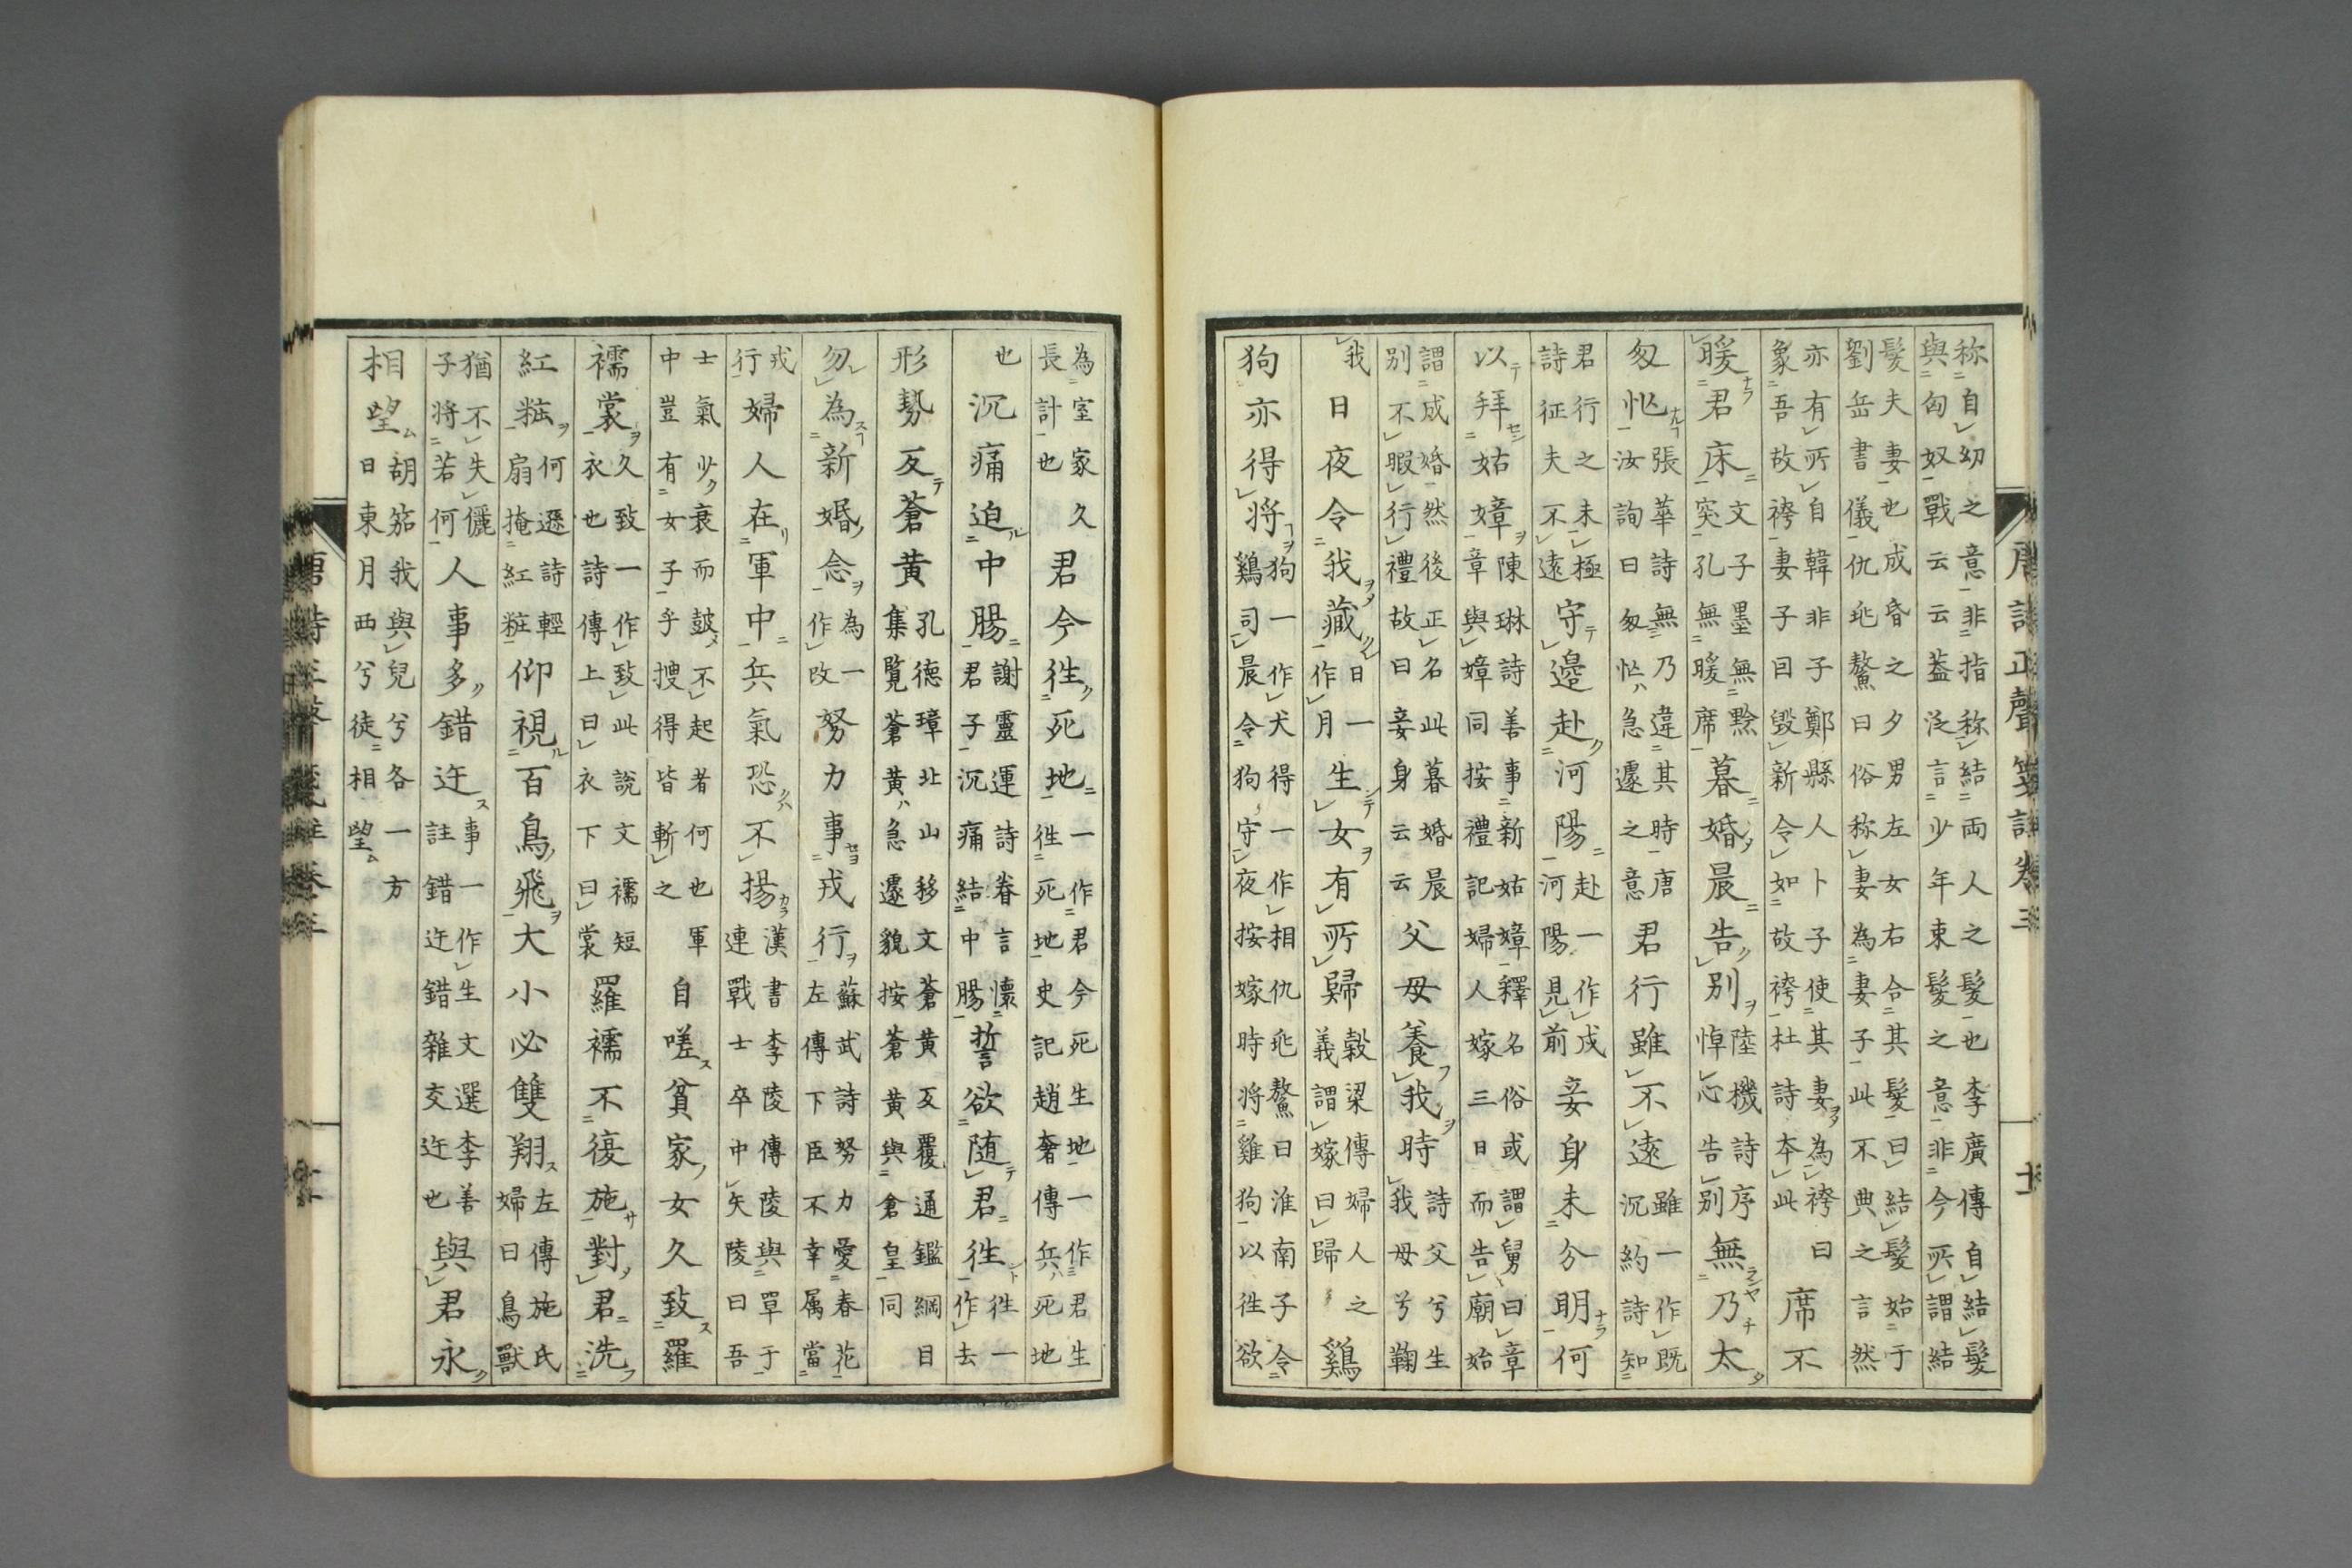 唐詩正聲箋註卷三
称自幼之意非指称結両人之髮也李廣傳自結髮
與匈奴戰云云蓋泛言少年束髮之意非今所謂結
髮夫妻也成昏之夕男左女右合其髮曰結髮始于
劉岳書儀仇兆鰲曰俗称妻為妻子此不典之言然
亦有所自韓非子鄭縣人卜子使其妻為袴曰
象吾故袴妻子因毀新令如故袴杜詩本此
席不
暖君床
文子墨無黔
突孔無暖席
暮婚晨告別
陸機詩序
悼心告別
無乃太
匆忙
張華詩無乃違其時唐
汝詢曰匆忙急遽之意
君行雖不遠
雖一作既
沉約詩知
君行之未極
詩征夫不遠
守邊赴河陽
赴一作戍
河陽見前
妾身未分明何
以拜姑嫜
陳琳詩善事新姑嫜釋名俗或謂舅曰章
章與嫜同按禮記婦人嫁三日而告廟始
謂成婚然後正名此暮婚晨
别不暇行禮故曰妾身云云
父母養我時
詩父兮生
我母兮鞠
我
日夜令我藏
日一
作月
生女有所歸
穀梁傳婦人之
義謂嫁曰歸
鷄
狗亦得將
狗一作犬得一作相仇兆鰲曰淮南子令
鷄司晨令狗守夜按嫁時將雞狗以往欲
為室家久
長計也
君今往死地
一作君今死生地一作君生
往死地史記趙奢傳兵死地
也
沉痛迫中腸
謝靈運詩眷言懷
君子沉痛結中腸
誓欲随君往
往一
作去
形勢反蒼黄
孔德璋北山移文蒼黄反覆通鑑綱目
集覧蒼黄急遽貌按蒼黄與倉皇同
勿為新婚念
為一
作改
努力事戎行
蘇武詩努力愛春花
左傳下臣不幸属當
戎
行
婦人在軍中兵氣恐不揚
漢書李陵傳陵與單于
連戰士卒中矢陵曰吾
士氣少衰而鼓不起者何也軍
中豈有女子乎捜得皆斬之
自嗟貧家女久致羅
襦裳
久致一作致此說文襦短
衣也詩傳上曰衣下曰裳
羅襦不復施對君洗
紅粧
何遜詩輕
扇掩紅粧
仰視百鳥飛大小必雙翔
左傳施氏
婦曰鳥獸
猶不失儷
子將若何
人事多錯迕
事一作生文選李善
註錯迕錯雜交迕也
與君永
相望
胡笳我與兒兮各一方
日東月西兮徒相望